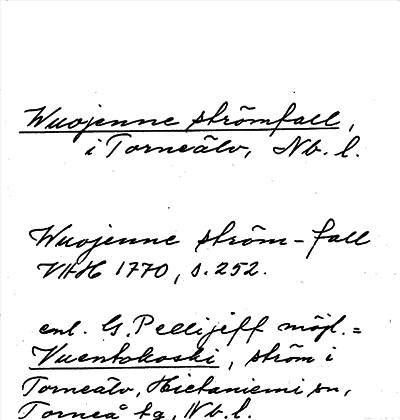 Wuojenne strömfall,
i Torneälv, Nb. l.
Wuojenne ström-fall
VHH 1770, s. 252.
enl. G. Pellijeff möjl. =
Vuentokoski, ström i
Torneälv, Hietaniemi sn,
Torneå tg, Nb. l.